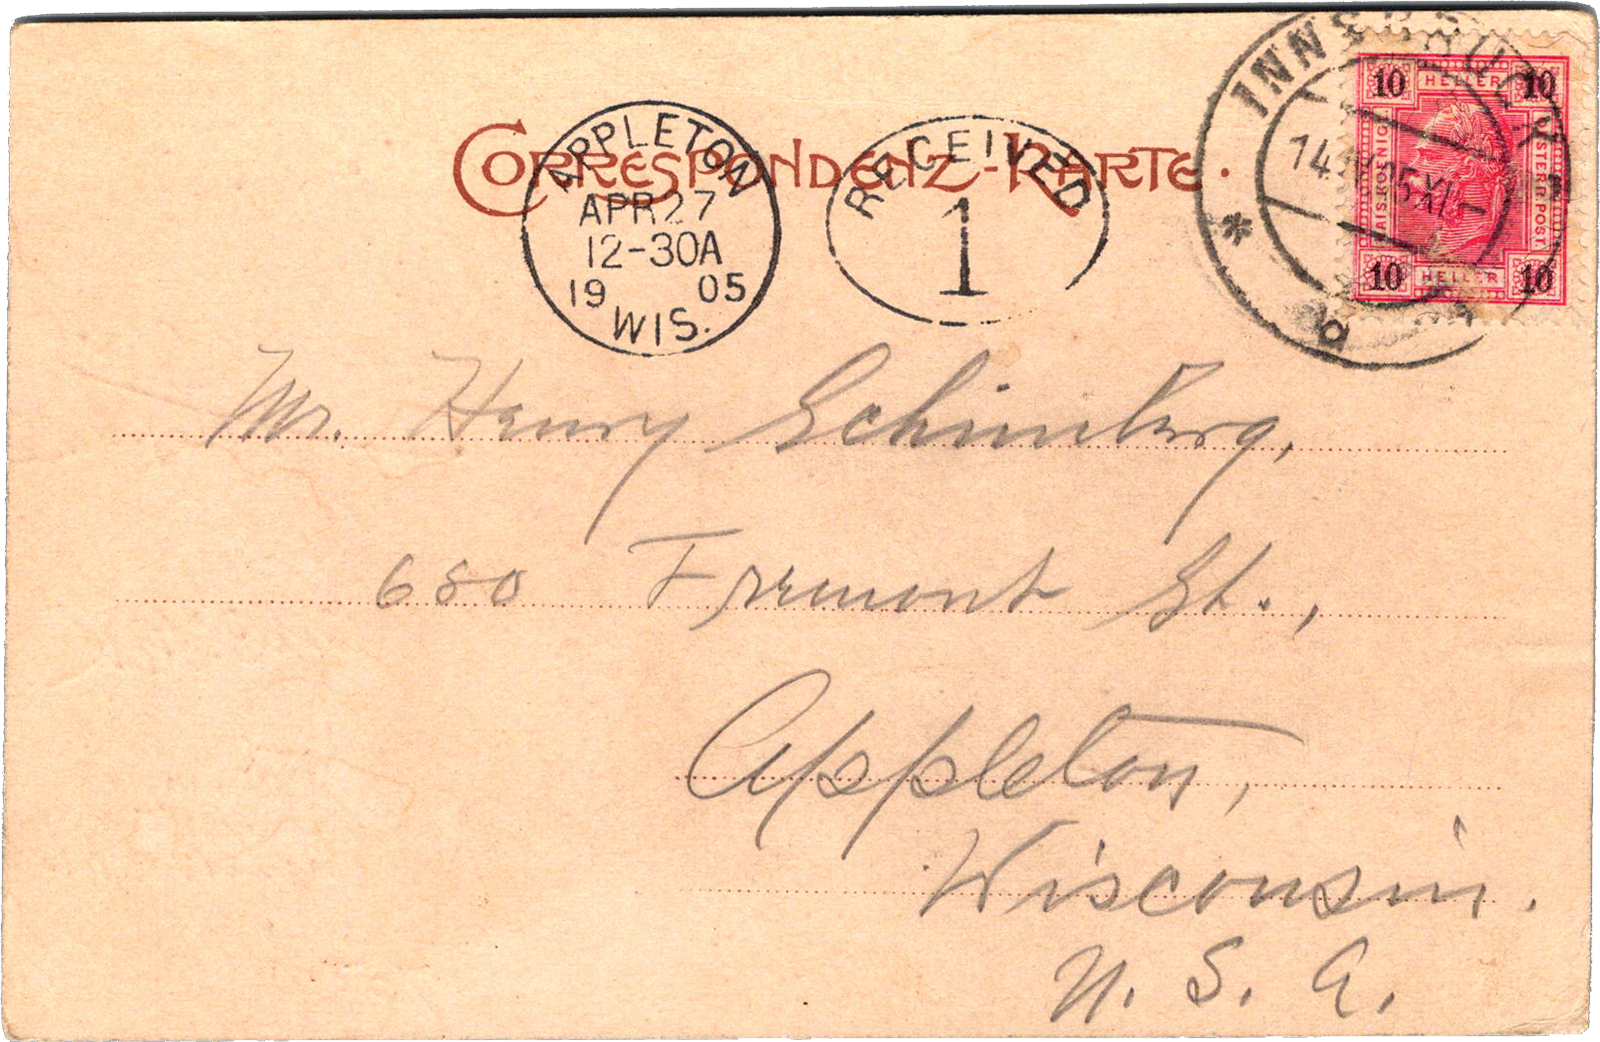 CORRESPONDENZ-KARTE.
APPLETON
APR 27
12-30A
19 05
WIS.
RECEIVED
1
INNSBRUCK 1
14.IV.05.XI
* b
10 HELLER 10
KAIS.KOENIGL.
ÖSTERR.POST.
10 HELLER 10
Mr. Henry Schimberg,
680 Fremont St.,
Appleton,
Wisconsin.
U. S. A.